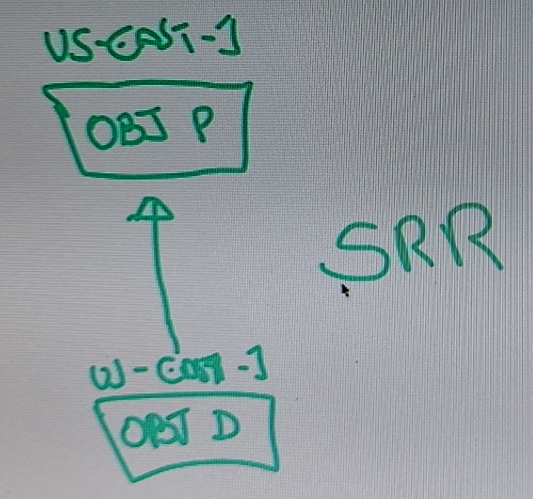 US-EAST-1
OBJ P
SRR
US-EAST-1
OBJ D